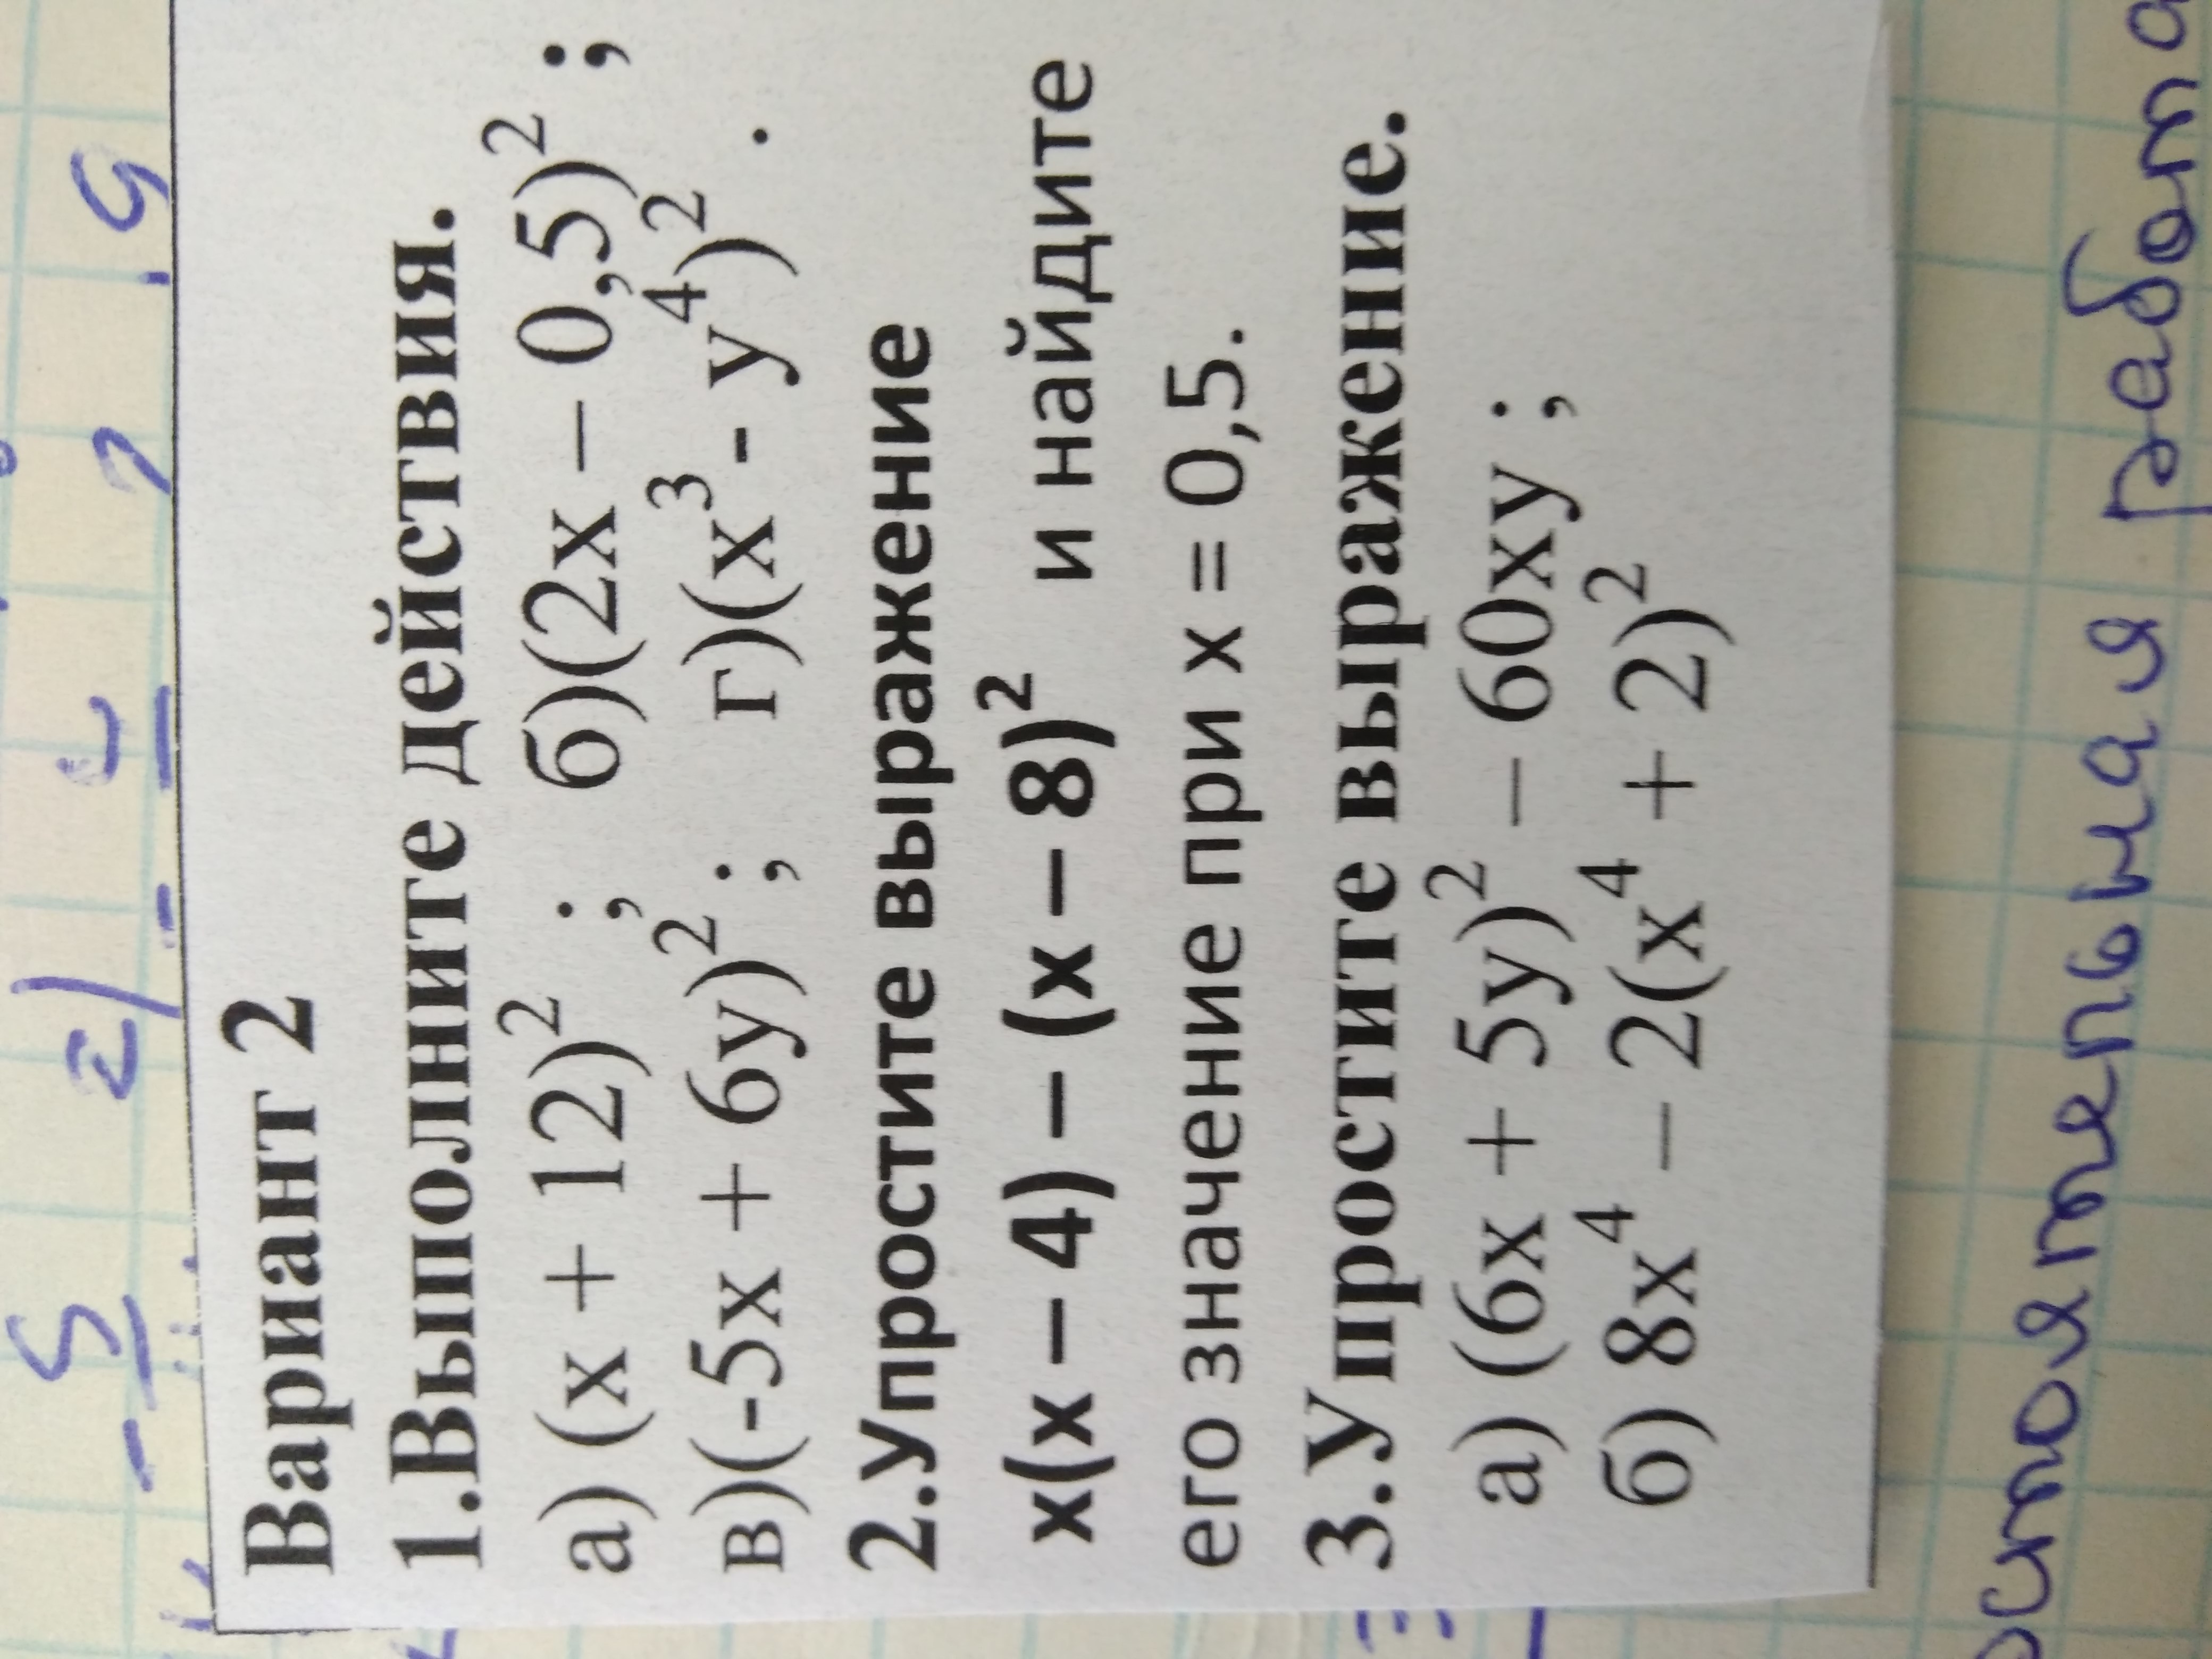 Вариант 2
1.Выполните действия.
а) (x + 12)² ; б)(2x – 0,5)² ;
в)(-5x + 6y)² ; г)(x³ - y⁴)² .
2.Упростите выражение
x(x – 4) – (x – 8)² и найдите
его значение при x = 0,5.
3.Упростите выражение.
а) (6x + 5y)² – 60xy ;
б) 8x⁴ – 2(x⁴ + 2)²
работа